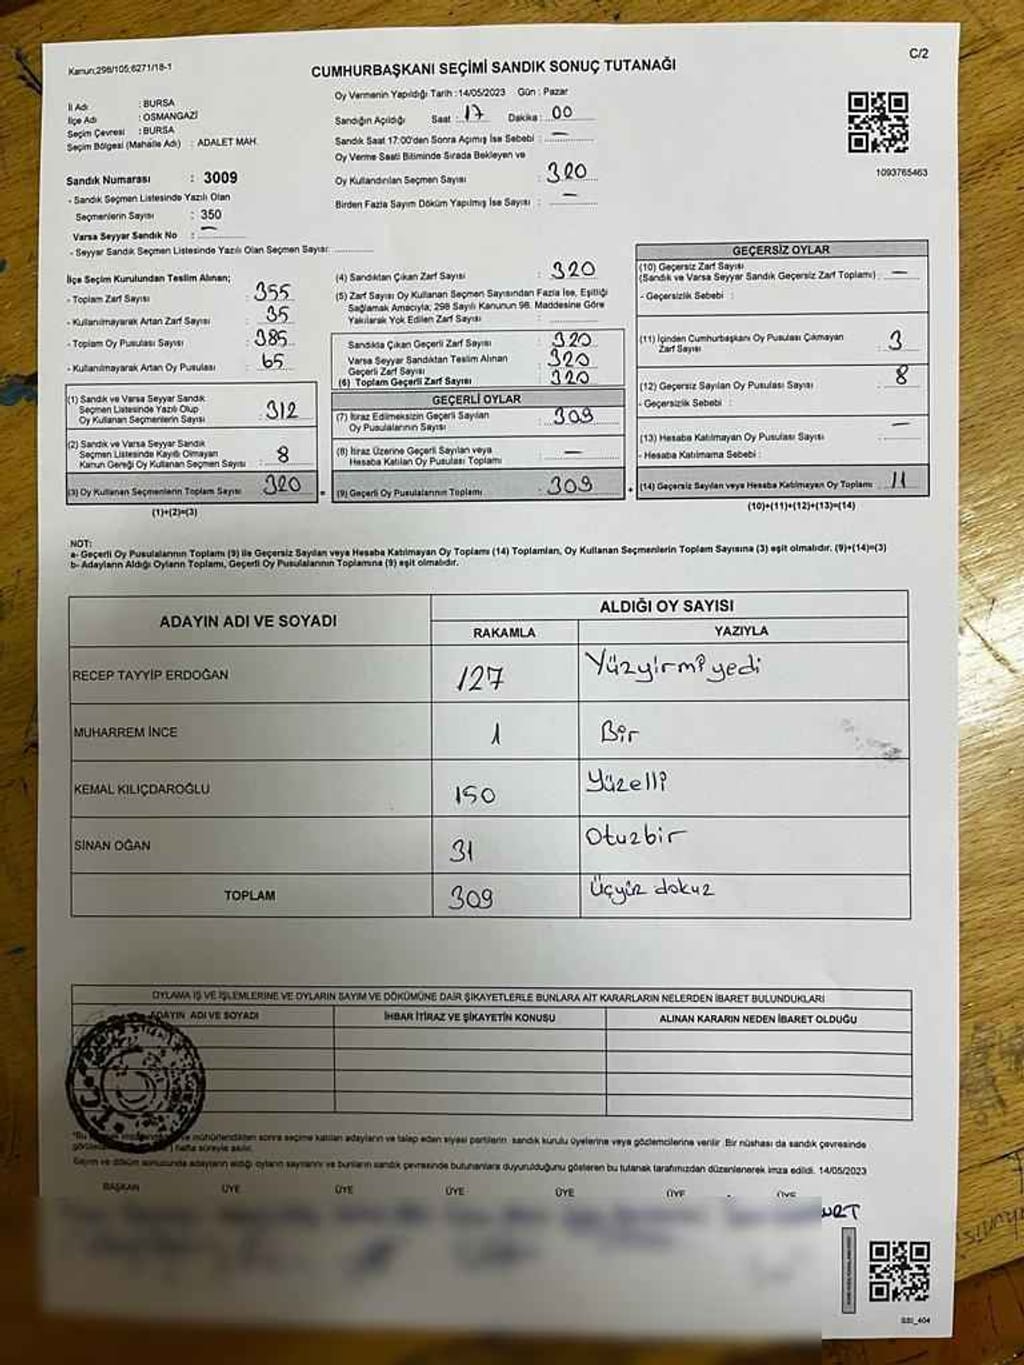 Kanun;298/105;6271/18-1
C/2
CUMHURBAŞKANI SEÇİMİ SANDIK SONUÇ TUTANAĞI
İl Adı : BURSA
İlçe Adı : OSMANGAZİ
Seçim Çevresi : BURSA
Seçim Bölgesi (Mahalle Adı) : ADALET MAH.
Oy Vermenin Yapıldığı Tarih :14/05/2023 Gün : Pazar
Sandığın Açıldığı Saat : 17 Dakika : 00
Sandık Saat 17:00'den Sonra Açılmış İse Sebebi : —
Oy Verme Saati Bitiminde Sırada Bekleyen ve
Oy Kullandırılan Seçmen Sayısı : 320
Birden Fazla Sayım Döküm Yapılmış İse Sayısı : —
1093765463
Sandık Numarası : 3009
- Sandık Seçmen Listesinde Yazılı Olan
Seçmenlerin Sayısı : 350
Varsa Seyyar Sandık No : —
- Seyyar Sandık Seçmen Listesinde Yazılı Olan Seçmen Sayısı:
İlçe Seçim Kurulundan Teslim Alınan;
- Toplam Zarf Sayısı : 355
- Kullanılmayarak Artan Zarf Sayısı : 35
- Toplam Oy Pusulası Sayısı : 385
- Kullanılmayarak Artan Oy Pusulası : 65
(1) Sandık ve Varsa Seyyar Sandık
Seçmen Listesinde Yazılı Olup
Oy Kullanan Seçmenlerin Sayısı : 312
(2) Sandık ve Varsa Seyyar Sandık
Seçmen Listesinde Kayıtlı Olmayan
Kanun Gereği Oy Kullanan Seçmen Sayısı : 8
(3) Oy Kullanan Seçmenlerin Toplam Sayısı 320
(1)+(2)=(3)
(4) Sandıktan Çıkan Zarf Sayısı : 320
(5) Zarf Sayısı Oy Kullanan Seçmen Sayısından Fazla İse, Eşitliği
Sağlamak Amacıyla; 298 Sayılı Kanunun 98. Maddesine Göre
Yakılarak Yok Edilen Zarf Sayısı :
Sandıkta Çıkan Geçerli Zarf Sayısı : 320
Varsa Seyyar Sandıktan Teslim Alınan
Geçerli Zarf Sayısı : 320
(6) Toplam Geçerli Zarf Sayısı : 320
GEÇERLİ OYLAR
(7) İtiraz Edilmeksizin Geçerli Sayılan
Oy Pusulalarının Sayısı : 309
(8) İtiraz Üzerine Geçerli Sayılan veya
Hesaba Katılan Oy Pusulası Toplamı : —
= (9) Geçerli Oy Pusulalarının Toplamı : 309
GEÇERSİZ OYLAR
(10) Geçersiz Zarf Sayısı
(Sandık ve Varsa Seyyar Sandık Geçersiz Zarf Toplamı) : —
- Geçersizlik Sebebi :
(11) İçinden Cumhurbaşkanı Oy Pusulası Çıkmayan
Zarf Sayısı : 3
(12) Geçersiz Sayılan Oy Pusulası Sayısı : 8
- Geçersizlik Sebebi :
(13) Hesaba Katılmayan Oy Pusulası Sayısı : —
- Hesaba Katılmama Sebebi :
+ (14) Geçersiz Sayılan veya Hesaba Katılmayan Oy Toplamı : 11
(10)+(11)+(12)+(13)=(14)
NOT:
a- Geçerli Oy Pusulalarının Toplamı (9) ile Geçersiz Sayılan veya Hesaba Katılmayan Oy Toplamı (14) Toplamları, Oy Kullanan Seçmenlerin Toplam Sayısına (3) eşit olmalıdır. (9)+(14)=(3)
b- Adayların Aldığı Oyların Toplamı, Geçerli Oy Pusulalarının Toplamına (9) eşit olmalıdır.
ADAYIN ADI VE SOYADI
ALDIĞI OY SAYISI
RAKAMLA YAZIYLA
RECEP TAYYİP ERDOĞAN 127 Yüzyirmiyedi
MUHARREM İNCE 1 Bir
KEMAL KILIÇDAROĞLU 150 Yüzelli
SİNAN OĞAN 31 Otuzbir
TOPLAM 309 Üçyüz dokuz
OYLAMA İŞ VE İŞLEMLERİNE VE OYLARIN SAYIM VE DÖKÜMÜNE DAİR ŞİKAYETLERLE BUNLARA AİT KARARLARIN NELERDEN İBARET BULUNDUKLARI
ADAYIN ADI VE SOYADI İHBAR İTİRAZ VE ŞİKAYETİN KONUSU ALINAN KARARIN NEDEN İBARET OLDUĞU
ve mühürlendikten sonra seçime katılan adayların ve talep eden siyasi partilerin sandık kurulu üyelerine veya gözlemcilerine verilir. Bir nüshası da sandık çevresinde
hafta süreyle asılır.
Sayım ve döküm sonucunda adayların aldığı oyların sayılarını ve bunların sandık çevresinde bulunanlara duyurulduğunu gösteren bu tutanak tarafımızdan düzenlenerek imza edildi. 14/05/2023
BAŞKAN ÜYE ÜYE ÜYE ÜYE ÜYE ÜYE